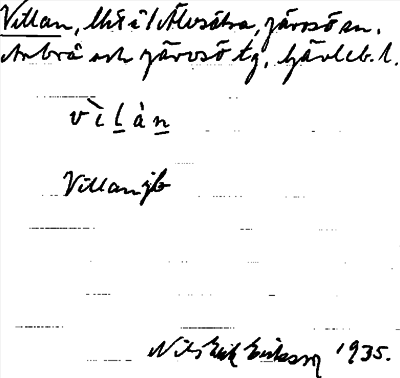 Villan, lht i Älvsätra, Järvsö sn.
Arbrå och Järvsö tg, Gävleb. l.
vìlàn
Villan jb
Nils Erik Eriksson 1935.